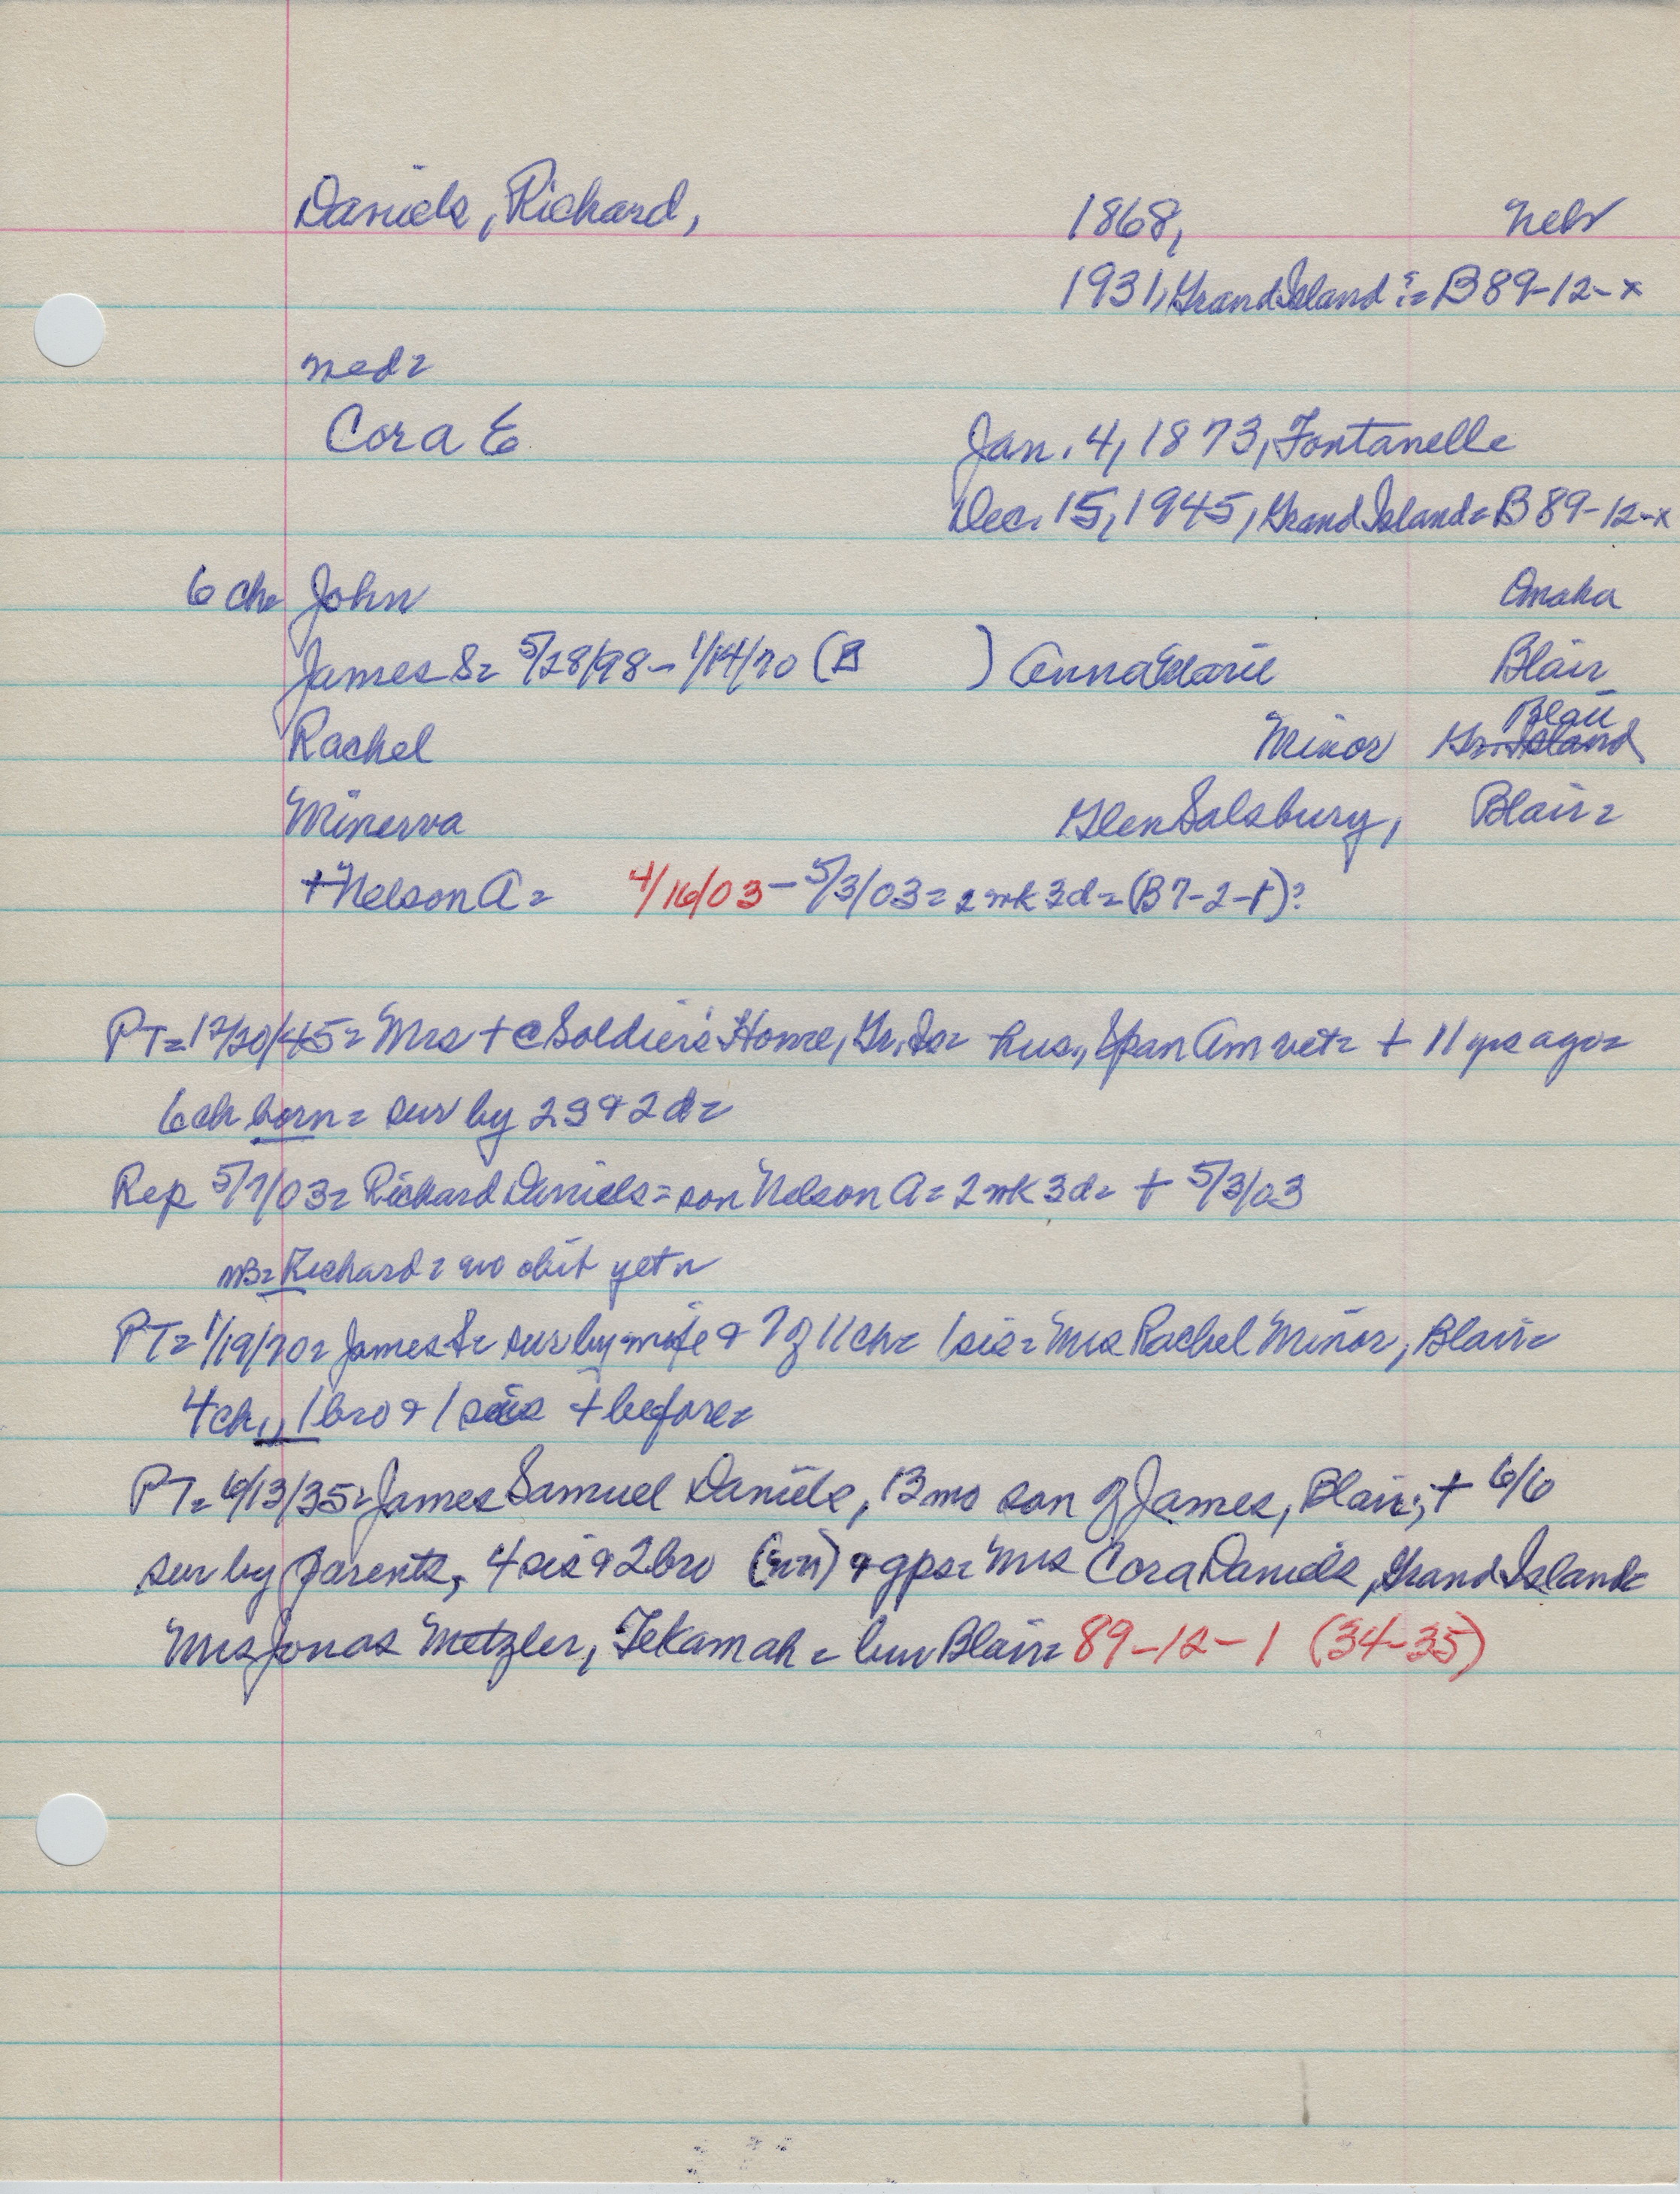 Daniels, Richard, 1868, Nebr
1931, Grand Island := B 89-12-x
med=
Cora E Jan. 4, 1873, Fontanelle
Dec. 15, 1945, Grand Island = B 89-12-x
6 ch= John Omaha
James S= 5/28/98 - 1/14/70 (B ) Anna Marie Blair
Rachel Minor Blair Gr. Island
Minerva Glen Salsbury, Blair=
+Nelson A= 4/16/03 - 5/3/03 = 2 wk 3d = (B7-2-1)?
PT= 12/20/45= Mrs + @ Soldier's Home, Gr. Is= hus., Span Am vet= + 11 yrs ago=
6 ch born= sur by 2 S & 2 d=
Rep 5/7/03= Richard Daniels = son Nelson A= 2 wk 3d= + 5/3/03
NB= Richard = no obit yet=
PT= 1/19/70= James S= sur by wife & 7 of 11 ch= 1 sis= Mrs Rachel Minor, Blair=
4 ch,, 1 bro & 1 sis + before=
PT= 6/13/35= James Samuel Daniels, 13 mo son of James, Blair; + 6/6
sur by parents, 4 sis & 2 bro (nn) & gps= Mrs Cora Daniels, Grand Island=
Mrs Jonas Metzler, Tekamah = bur Blair= 89-12-1 (34-35)